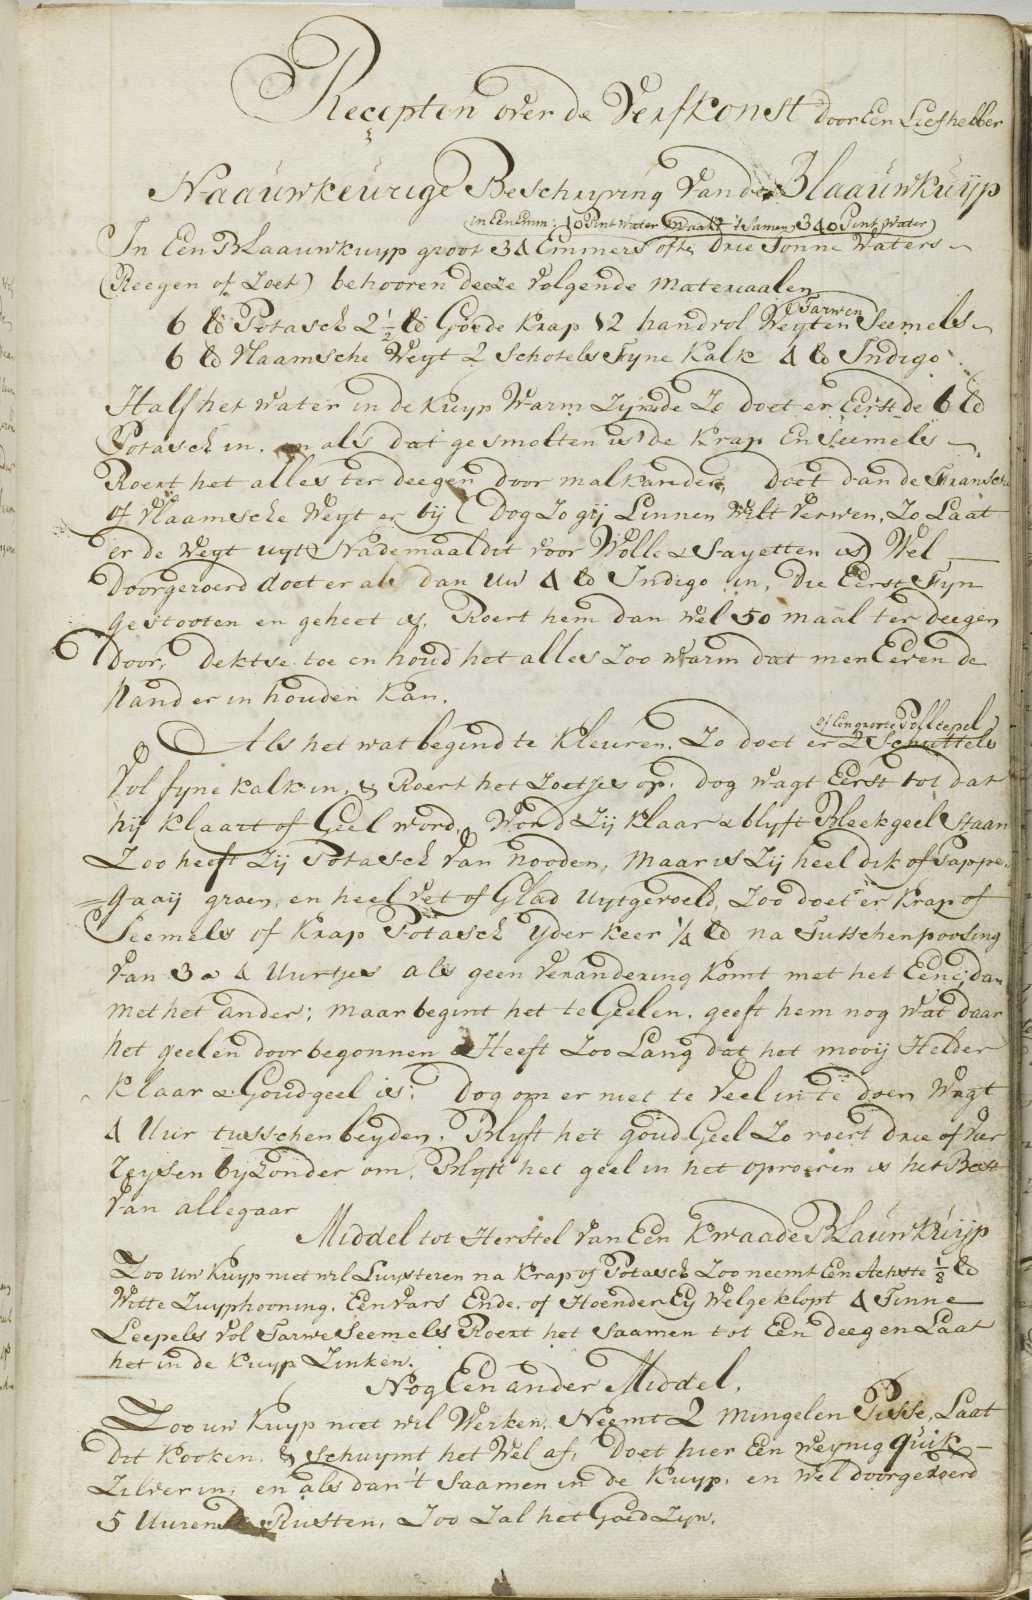 Recepten over de Verfkonst door Een Liefhebber
Naauwkeurige Beschryving van de Blaauwkuyp
(in Een Emm: 10 Pint water maakt 't Samen 340 Pint Water)
In Een Blaauwkuyp groot 34 Emmers ofte drie Tonne Waters
(Reegen of Zoet) behooren deeze volgende Materiaalen
Tarwen
6 lb Potasch 2 1/2 lb Goede Krap 12 handvol Weyten Seemels
6 lb Vlaamsche Weyt 2 Schotels Fyne Kalk 4 lb Indigo
Half het water in de Kuyp Warm Zynde Zo doet er Eerst de 6 lb
Potasch in. en als dat gesmolten is de Krap En Seemels
Roert het alles ter deegen door malkander, doet dan de Fransche
of Vlaamsche Weyt er by (Dog Zo gy Linnen Wilt Verwen, Zo Laat
er de Weyt uyt Nademaal dit voor Wolle & Sayetten is) Wel
Doorgeroerd doet er als dan Uw 4 lb Indigo in, Die Eerst Fyn
gestooten en geheet is, Roert hem dan wel 50 maal ter deegen
door, dektse toe en houd het alles Zoo warm dat men Even de
hand er in houden kan.
of Een groote Pollepel
Als het wat begind te Kleuren, Zo doet er 2 Schuttels
Vol fyne kalk in, & Roert het Zoetjes op. dog wagt Eerst tot dat
hy klaart of Geel word, Word Zij Klaar & blyft Bleekgeel Staan
Zoo heeft Zij Potasch van nooden, maar is Zij heel dik of Pappe-
=gaaij groen, en heel vet of Glad Uytgeroeld, Zoo doet er Krap of
Seemels of Krap Potasch Yder keer 1/4 lb na Tusschenpoosing
van 3 a 4 Uurtjes als geen verandering komt met het Eene, dan
met het ander; maar begint het te Geelen. geeft hem nog wat daar
het geelen door begonnen Heeft Zoo Lang dat het mooij Helder
Klaar & Goudgeel is: Dog om er niet te veel in te doen Wagt
4 Uur tusschen beyden. Blyft het goud Geel Zo roert drie of vier
Reysen byzonder om, Blyft het geel in het oproeren is het Best
van allegaar
Middel tot Herstel van Een kwaade Blauwkuyp
Zoo uw Kuyp niet wil Luysteren na Krap of Potasch Zoo neemt Een Achste 1/8 lb
Witte Zuyphooning, Een Vars Ende, of Hoender Ey Wel geklopt 4 Tinne
Leepels vol Tarwe Seemels Roert het Saamen tot Een deeg en Laat
het in de Kuyp Zinken.
Nog Een ander Middel.
Zoo uw Kuyp niet wil Werken, Neemt 2 Mingelen Pisse, Laat
dit Kooken, & Schuymt het Wel af, Doet hier Een weynig quik-
Zilver in, en als dan 't Saamen in de Kuyp, en wel doorgeroerd
5 Uuren Rusten, Zoo Zal het Goed Zyn.